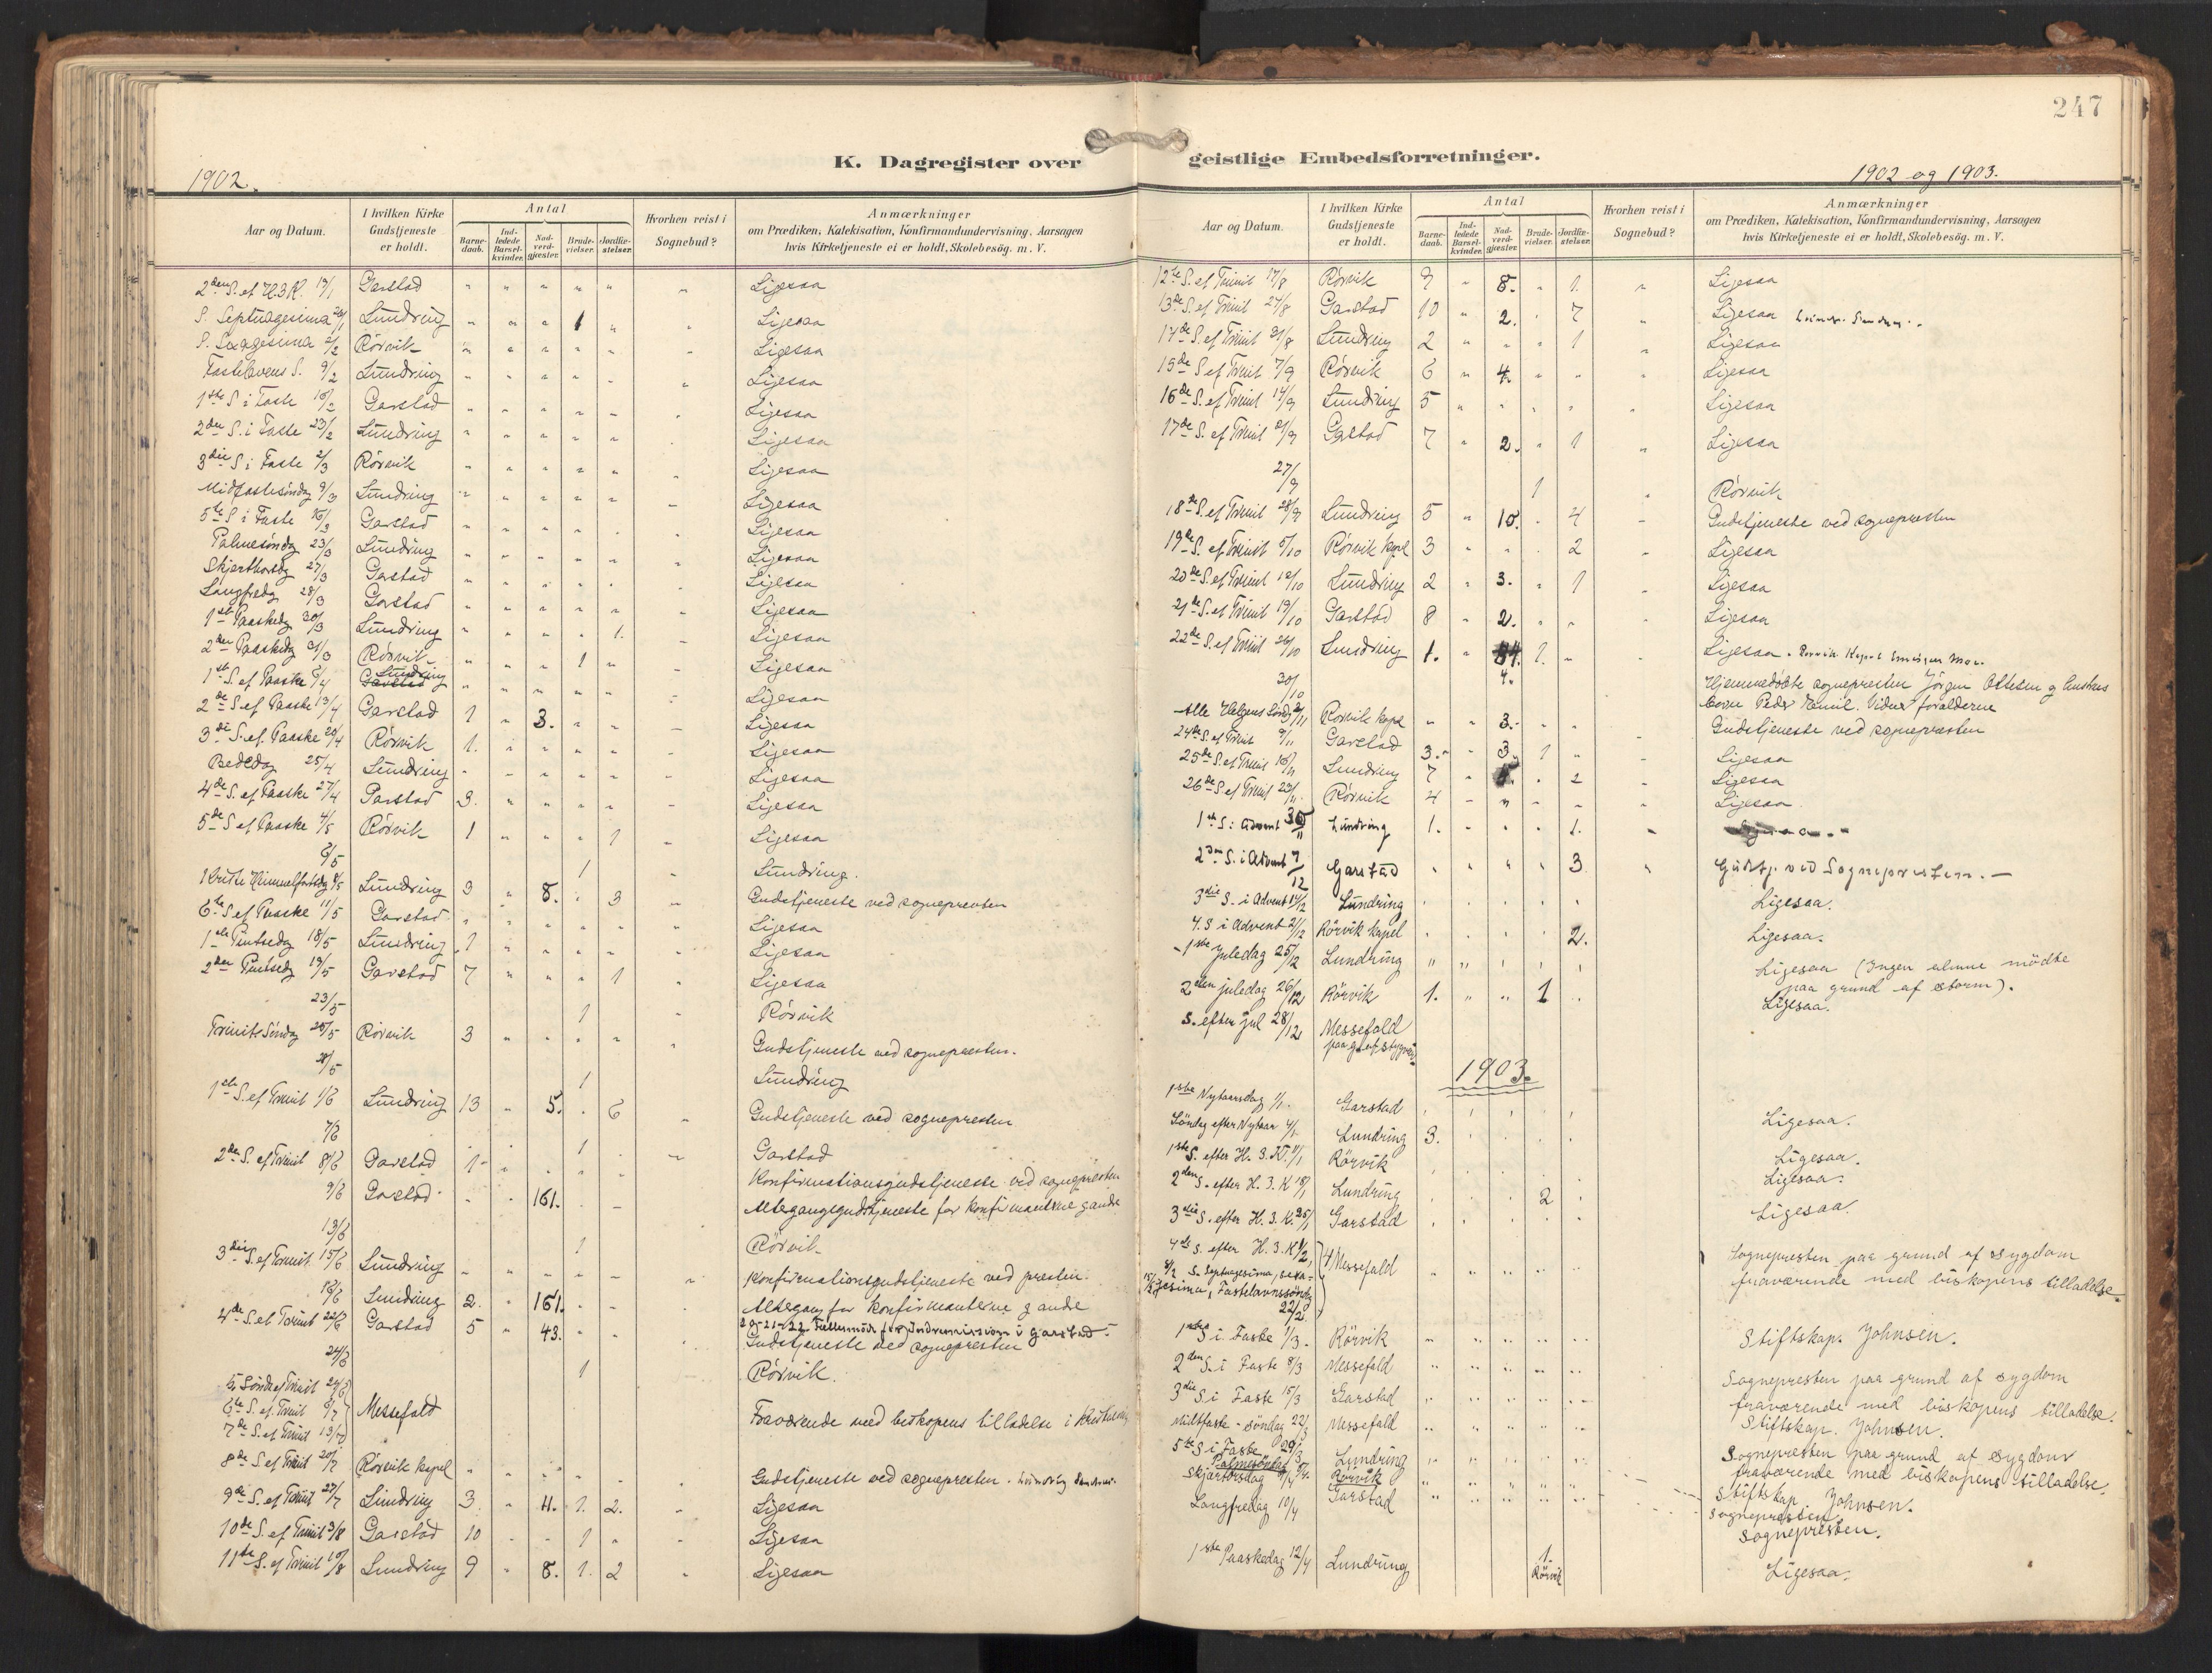 247
K. Dagregister over geistlige Embedsforretninger.
1902.
1902 og 1903.
Aar og Datum. I hvilken Kirke Gudstjeneste er holdt. Antal Barne-daab. Ind-ledede Barsel-kvinder. Nad-verd-gjæster. Brude-vielser. Jordfæ-stelser. Hvorhen reist i Sognebud? Anmærkninger om Prædiken, Katekisation, Konfirmandundervisning, Aarsagen hvis Kirketjeneste ei er holdt, Skolebesøg. m. V.
2den S. ef H3K. 19/1 Garstad " " " " " " Ligesaa
S. Septuagesima 26/1 Lundring " " " 1 " " Ligesaa
S. Sexagesima 2/2 Rörvik " " " " " Ligesaa
Fastelavens S. 9/2 Lundring " " " " " " Ligesaa
1ste S i Faste 16/2 Garstad " " " " " " Ligesaa
2den S. i Faste 23/2 Lundring " " " " " " Ligesaa
3die S. i Faste 2/3 Rörvik " " " " " " Ligesaa
Midfastesöndag 9/3 Lundring " " " " " " Ligesaa
5te S i Faste 16/3 Garstad " " " " " " Ligesaa
Palmesöndag 23/3 Lundring " " " " " " Ligesaa
Skjærthorsdg 27/3 Garstad " " " " " " Ligesaa
Langfredg 28/3 Garstad " " " " " " Ligesaa
1ste Paaskedg 30/3 Lundring " " " " 1. " Ligesaa
2den Paaskedg 31/3 Rörvik " " " 1 " " Ligesaa
1ste S. ef Paaske 6/4 Garstad Lundring " " " " " " Ligesaa
2de S. ef Paaske 13/4 Garstad 1 " 3. " " " Ligesaa
3die S. ef. Paaske 20/4 Rörvik 1. " " " " " Ligesaa
Bededag 25/4 Lundring " " " " " " Ligesaa
4de S. ef Paaske 27/4 Garstad 3. " " " " " Ligesaa
5de S ef Paaske 4/5 Rörvik 1 " " " 1 " Ligesaa
6/5 1 " Lundring.
Kristi Himmelfartsdg 8/5 Lundring 3 " 8. " 3 " Gudstjeneste ved sognepresten
6te S. ef Paaske 11/5 Garstad " " " " " " Ligesaa
1ste Pintsedg 18/5 Lundring 1 " " " " " Ligesaa
2den Pintsedg 19/5 Garstad 7 " " " 1 " Ligesaa
23/5 1 " Rörvik
Trinits Söndag 25/5 Rörvik 3 " " " " " Gudstjeneste ved sognepresten.
28/5 1 Lundring
1ste S. ef Trinit 1/6 Lundring 13 " 5. " 6 " Gudstjeneste ved sognepresten
7/6 1 " Garstad
2den S. ef Trinit 8/6 Garstad 1 " " " " Konfirmationsgudstjeneste ved sognepresten
9/6 Garstad " " 161. " " Altergangsgudstjeneste for konfirmanterne g andre
13/6 1 Rörvik
3die S. ef Trinit 15/6 Lundring " " " " " " Konfirmationsgudstjeneste ved presten.
16/6 Lundring 2. " 161. " " " Altergang for konfirmanterne g andre
20-21-22. Fællesmöde for Indremission i Garstad.
4de S. ef Trinit 22/6 Garstad 5 " 43. " " " Gudstjeneste ved sognepresten
24/6 1 Rörvik.
5te Söndg ef Trinit 29/6
6te S. ef. Trinit 6/7 Messefald Fraværende med biskopens tilladelse i
7de S. ef Trinit 13/7
8de S. ef Trinit 20/7 Rörvik kapel " " " " " " Gudstjeneste ved sognepresten. Lundring
9de S. ef Trinit 27/7 Lundring 3 " 4. 1. 2. " Ligesaa
10de S. ef Trinit 3/8 Garstad 10 " " 1 " " Ligesaa
11te S. ef Trinit 10/8 Lundring 9 " 8. 1. 2 " Ligesaa
Aar og Datum. I hvilken Kirke Gudstjeneste er holdt. Antal Barne-daab. Ind-ledede Barsel-kvinder. Nad-verd-gjæster. Brude-vielser. Jordfæ-stelser. Hvorhen reist i Sognebud? Anmærkninger om Prædiken, Katekisation, Konfirmandundervisning, Aarsagen hvis Kirketjeneste ei er holdt, Skolebesøg. m. V.
12te S. ef Trinit 17/8 Rörvik 9 " 8. " 1. " Ligesaa
13de S. ef Trinit 24/8 Garstad 10 " 2. " 7 " Ligesaa
14de S. ef Trinit 31/8 Lundring 2 " " " 1 " Ligesaa
15de S ef Trinit 7/9 Rörvik 6 " 4. " " " Ligesaa
16de S. ef Trinit 14/9 Lundring 5 " " " " " Ligesaa
17de S. ef Trinit 21/9 Garstad 7 " 2. " 1 " Ligesaa
27/9 1 " Rörvik
18de S. ef Trinit 28/9 Lundring 5 " 10. " 4 " Gudstjeneste ved sognepresten
19de S. ef Trinit 5/10 Rörvik kpel 3 " " " 2 " Ligesaa
20de S. ef Trinit 12/10 Lundring 2 " 3. " 1 " Ligesaa
21de S. ef Trinit 19/10 Garstad 8 " 2. " " " Ligesaa
22de S. ef Trinit 26/10 Lundring 1. " 4. 1. " " Ligesaa.
30/10 Hjemmedöbte sognepresten Jörgen Ottesen g
Peder Emil. Vidner forælderne
Alle Helgens Söndg 2/11 Rörvik kapel " " 3. " " Gudstjeneste ved sognepresten
24de S. ef Trinit 9/11 Garstad 3. " 3. 1 " " Ligesaa
25de S. ef Trinit 16/11 Lundring 7 " " 2 " Ligesaa
26de S. ef Trinit 23/11 Rörvik 4 " " " " " Ligesaa
1ste S. i Advent 30/11 Lundring 1. " " " 1. "
2den S. i Advent 7/12 Garstad " " " " 3 " Gudstj. ved Sognepresten.
3die S. i Advent 14/12 Lundring " " " " " Ligesaa.
4. S i Advent 21/12 Rörvik kapel " " " " 2. Ligesaa.
1ste Juledag 25/12 Lundring " " " " " Ligesaa (Ingen almue mödte
paa grund af storm).
2den juledag 26/12 Rörvik 1. " " 1 " Ligesaa.
S. efter jul 28/12 Messefald
1903.
1ste Nytaarsdag 1/1. Garstad " " " " " Ligesaa.
Söndag efter Nytaar 4/1 Lundring 3. " " " " Ligesaa.
1ste S. efter H. 3. K. 11/1 Rörvik " " " " Ligesaa.
2den S. efter H. 3. K 18/1 Lundring " " " 2 " Ligesaa.
3die S. efter H. 3. K. 25/1 Garstad " " " " "
4de S. efter H. 3. K 1/2, 4 Messefald " " " " Sognepresten paa grund af sygdom
8/2 S. Septuagesima, sexa- fraværende med biskopens tilladelse
15/2 gesima, Fastelavnssöndg
22/2.
1ste S i Faste 1/3. Rörvik " " " " " Stiftskap. Johnsen.
2den S. i Faste 8/3 Messefald " " " " " Sognepresten paa grund af sygdom
fraværende med biskopens tilladelse.
3die S i Faste 15/3 Garstad " " " " " Stiftskap. Johnsen.
Midtfaste-söndag 22/3 Messefald " " " " " Sognepresten paa grund af sygdom
fraværende med biskopens tilladelse.
5te S i Faste 29/3 Lundring " " " " " Stiftskap. Johnsen.
Palmesöndag 5/4. Rörvik Sognepresten
Skjærtorsdag 9/4 Garstad Sognepresten.
Langfredag 10/4
1ste Paaskedag 12/4 Lundring 1. Rörvik Ligesaa.